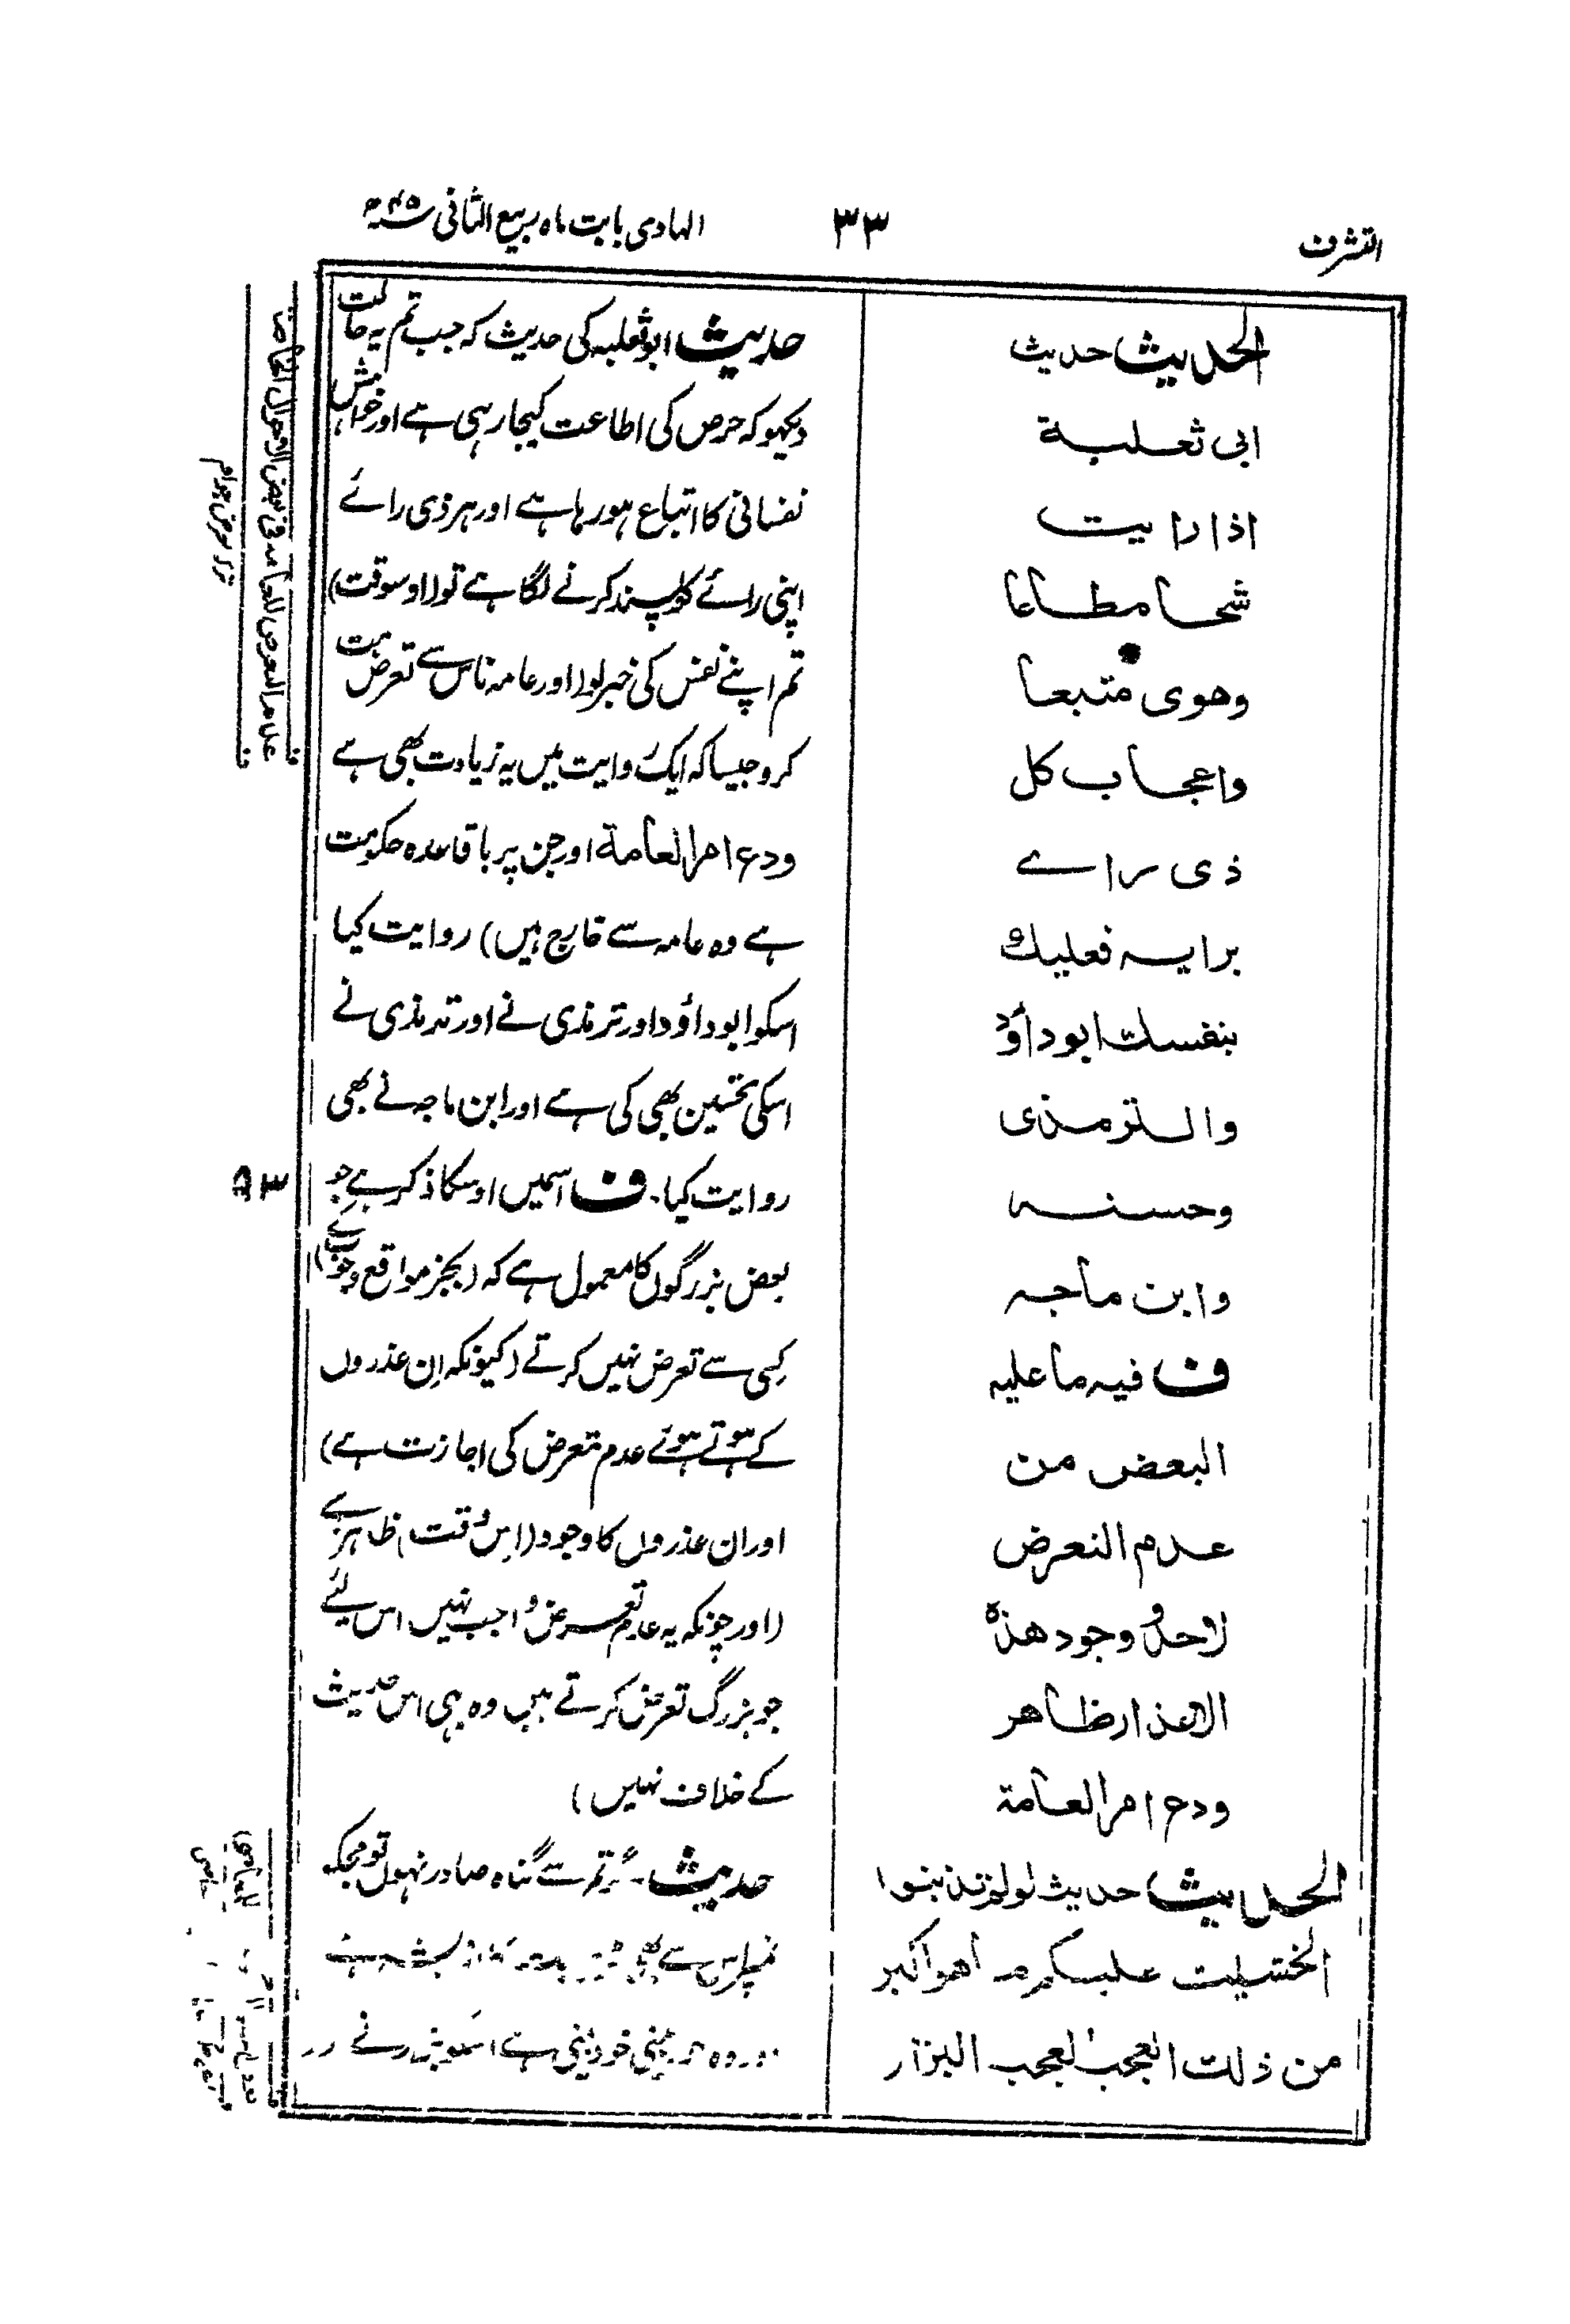 التشرف
۳۳
الہادی بابت ماہ ربیع الثانی ۴۵ھ
الحدیث حدیث
ابی ثعلبة
اذا رایت
شحا مطاعا
وھوی متبعا
واعجاب کل
ذی راے
برایہ فعلیك
بنفسك ابوداؤد
والترمذی
وحسنہ
وابن ماجہ
ف فیہ ما علیہ
البعض من
عدم التعرض
لاحد و وجود ھذہ
الاعذار ظاھر
ودع امر العامة
الحدیث حدیث لو لم تذنبوا
لخشیت علیکم ما ھو اکبر
من ذلك العجب العجب البزار
حدیث ابوثعلبہ کی حدیث کہ جب تم یہ حالت
دیکھو کہ حرص کی اطاعت کیجا رہی ہے اور خواہش
نفسانی کا اتباع ہو رہا ہے اور ہر ذی رائے
اپنی رائے کو پسند کرنے لگا ہے تو (اوسوقت)
تم اپنے نفس کی خبر لو (اور عامہ ناس سے تعرض مت
کرو جیسا کہ ایک روایت میں یہ زیادت بھی ہے
ودع امر العامة اور جن پر باقاعدہ حکومت
ہے وہ عامہ سے خارج ہیں) روایت کیا
اسکو ابوداؤد اور ترمذی نے اور ترمذی نے
اسکی تحسین بھی کی ہے اور ابن ماجہ نے بھی
روایت کیا۔ ف اسمیں اوسکا ذکر ہے جو
بعض بزرگوں کا معمول ہے کہ (بجز مواقع وجوب کے)
کسی سے تعرض نہیں کرتے (کیونکہ ان عذروں
کے ہوتے ہوئے عدم تعرض کی اجازت ہے)
اور ان عذروں کا وجود (اس وقت) ظاہر ہے
(اور چونکہ یہ عدم تعرض واجب نہیں اس لیئے
جو بزرگ تعرض کرتے ہیں وہ بھی اس حدیث
کے خلاف نہیں)
حدیث۔ اگر تم سے گناہ صادر نہوں تو مجکو
تمپر اس سے بھی
خود بینی ہے اسکو بزار نے
۵۳